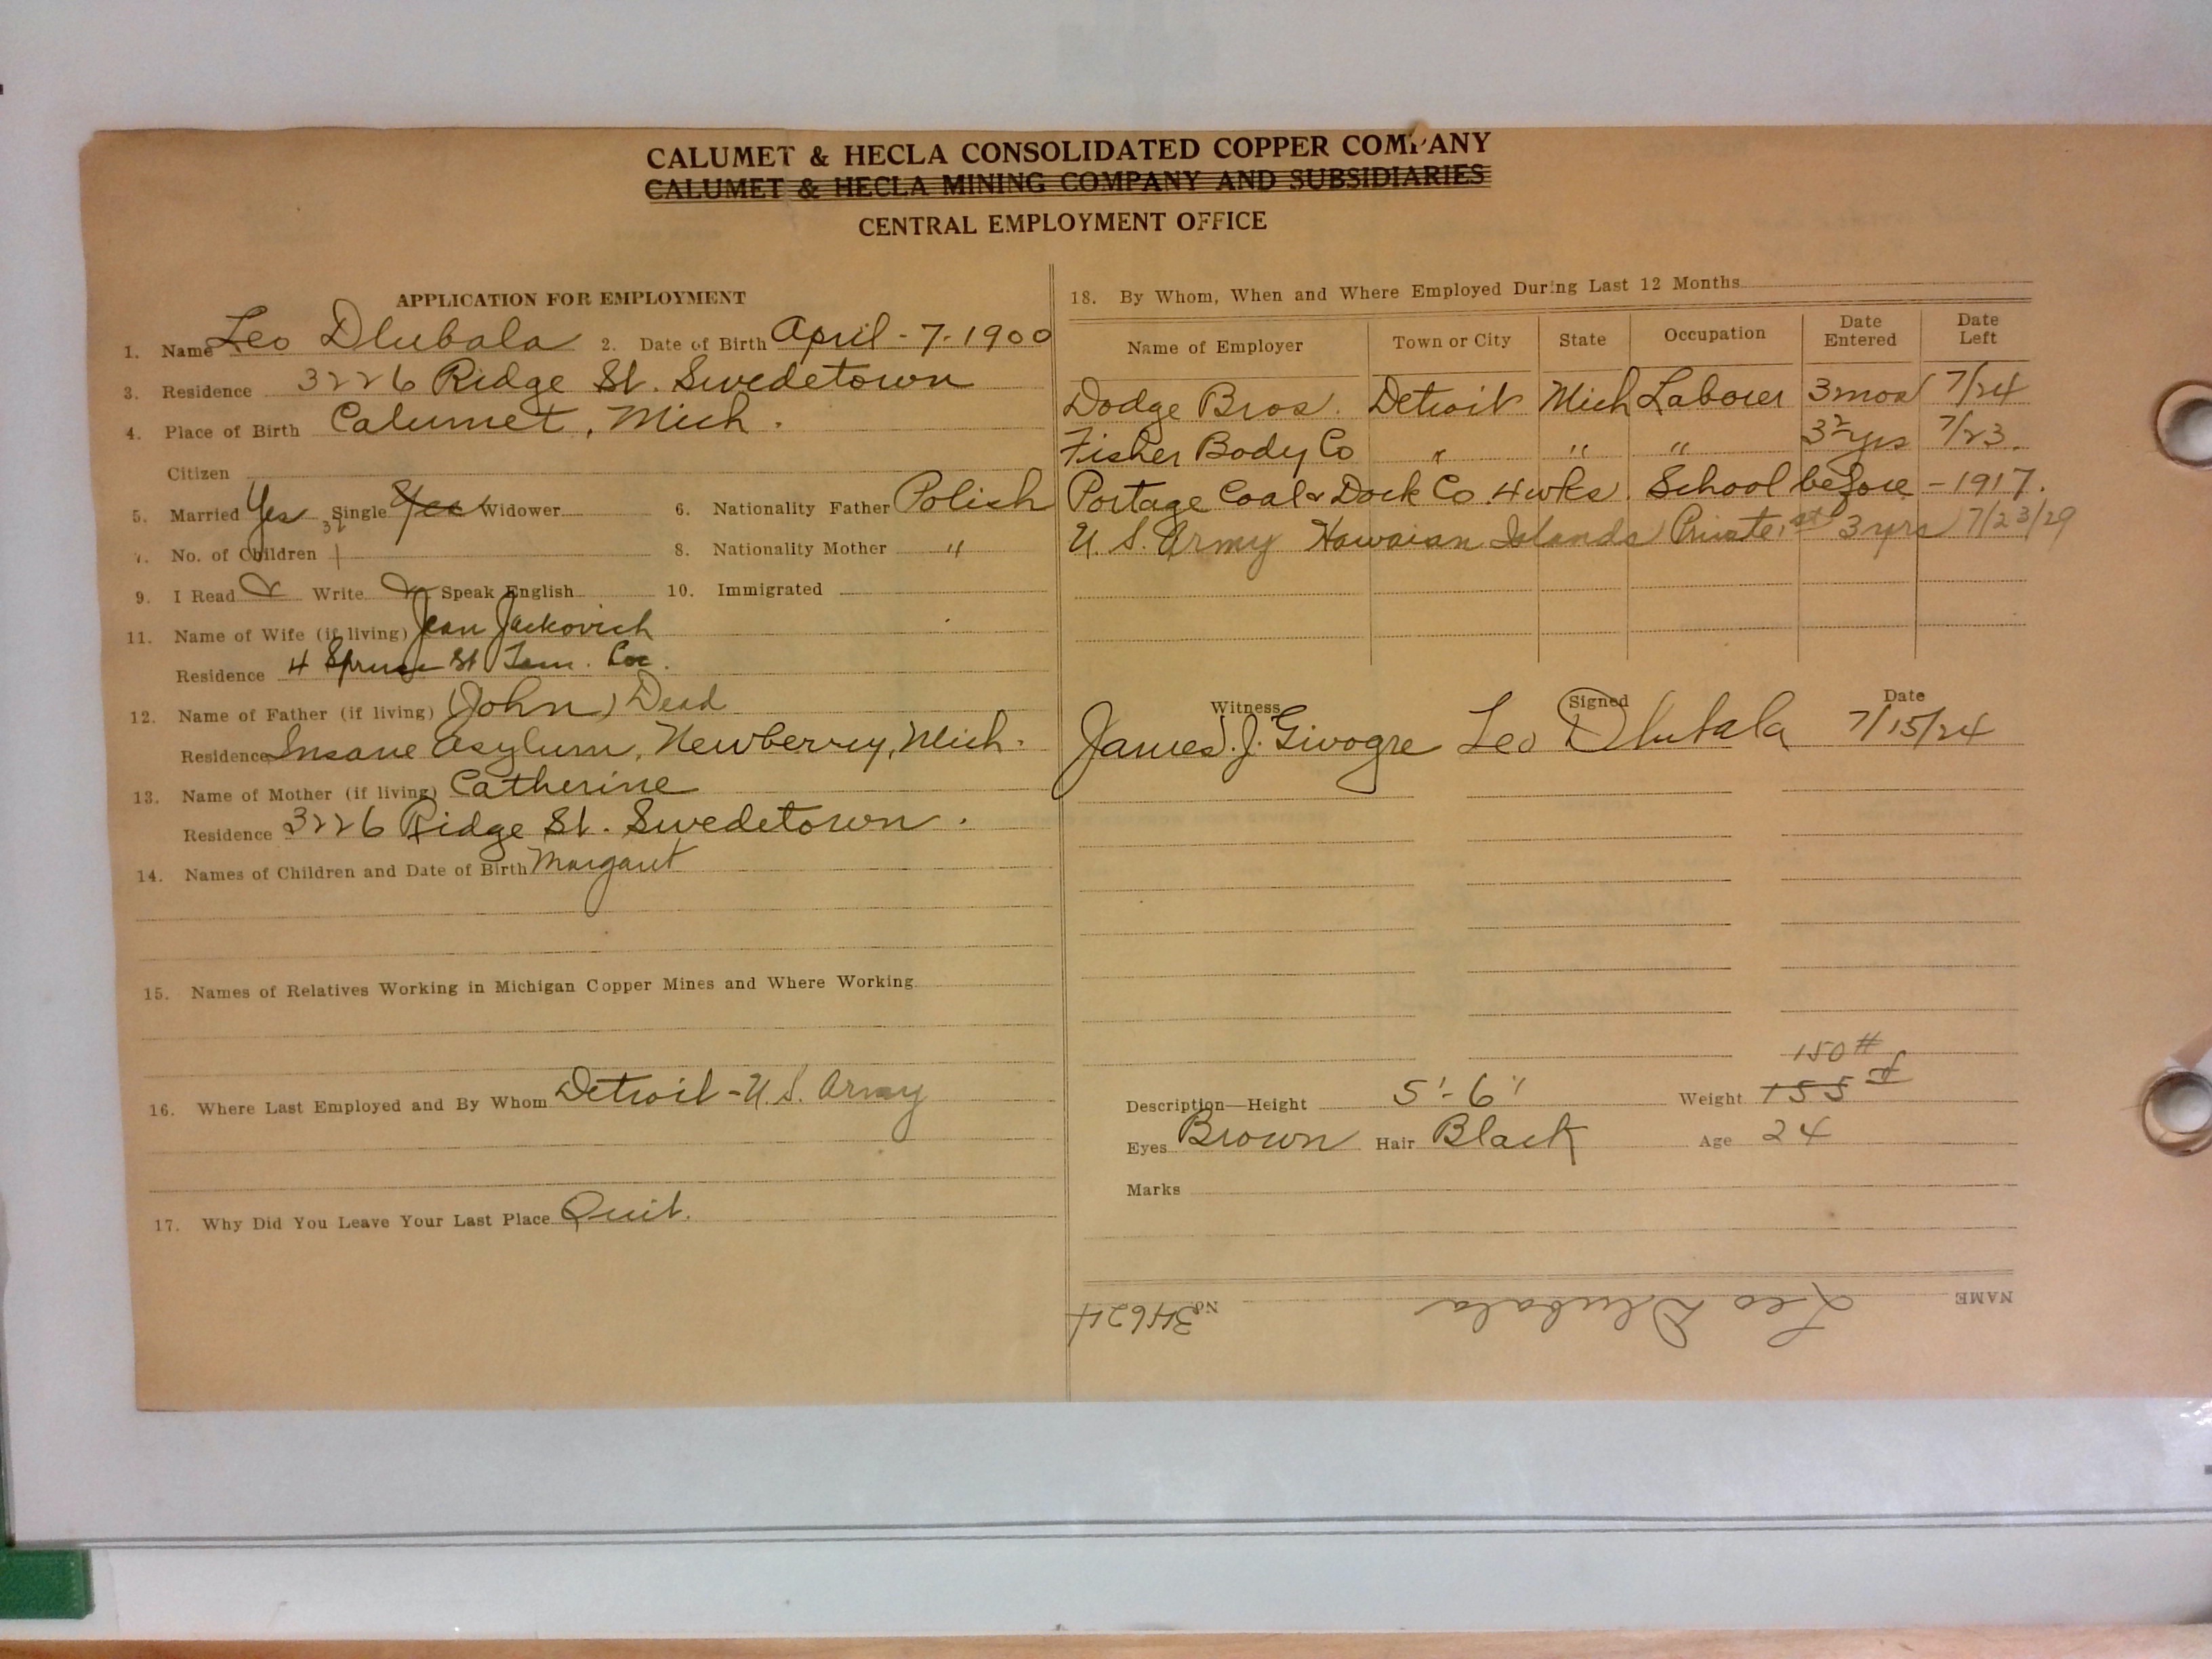 CALUMET & HECLA CONSOLIDATED COPPER COMPANY
CALUMET & HECLA MINING COMPANY AND SUBSIDIARIES
CENTRAL EMPLOYMENT OFFICE
APPLICATION FOR EMPLOYMENT
1. Name Leo Dlubala 2. Date of Birth April - 7 - 1900
3. Residence 3226 Ridge St. Swedetown
4. Place of Birth Calumet, Mich.
Citizen
5. Married Yes Single Yes Widower 6. Nationality Father Polish
7. No. of Children 1 8. Nationality Mother "
9. I Read Write Speak English 10. Immigrated
11. Name of Wife (if living) Jean Jackovich
Residence 4 Spruce St Tam.
12. Name of Father (if living) (John) Dead
Residence Insane Asylum, Newberry, Mich.
13. Name of Mother (if living) Catherine
Residence 3226 Ridge St. Swedetown.
14. Names of Children and Date of Birth Margaret
15. Names of Relatives Working in Michigan Copper Mines and Where Working
16. Where Last Employed and By Whom Detroit - U. S. Army
17. Why Did You Leave Your Last Place Quit.
18. By Whom, When and Where Employed During Last 12 Months
Name of Employer Town or City State Occupation Date Entered Date Left
Dodge Bros. Detroit Mich Laborer 3 mos 7/24
Fisher Body Co " " " 3 yrs 7/23.
Portage Coal & Dock Co. 4 wks. School before - 1917.
U. S. Army Hawaian Islands Private 1st 3 yrs 7/23/29
Witness Signed Date
James J. Givogre Leo Dlubala 7/15/24
150 #
Description—Height 5'-6" Weight 155 #
Eyes Brown Hair Black Age 24
Marks
NAME Leo Dlubala No. 34624